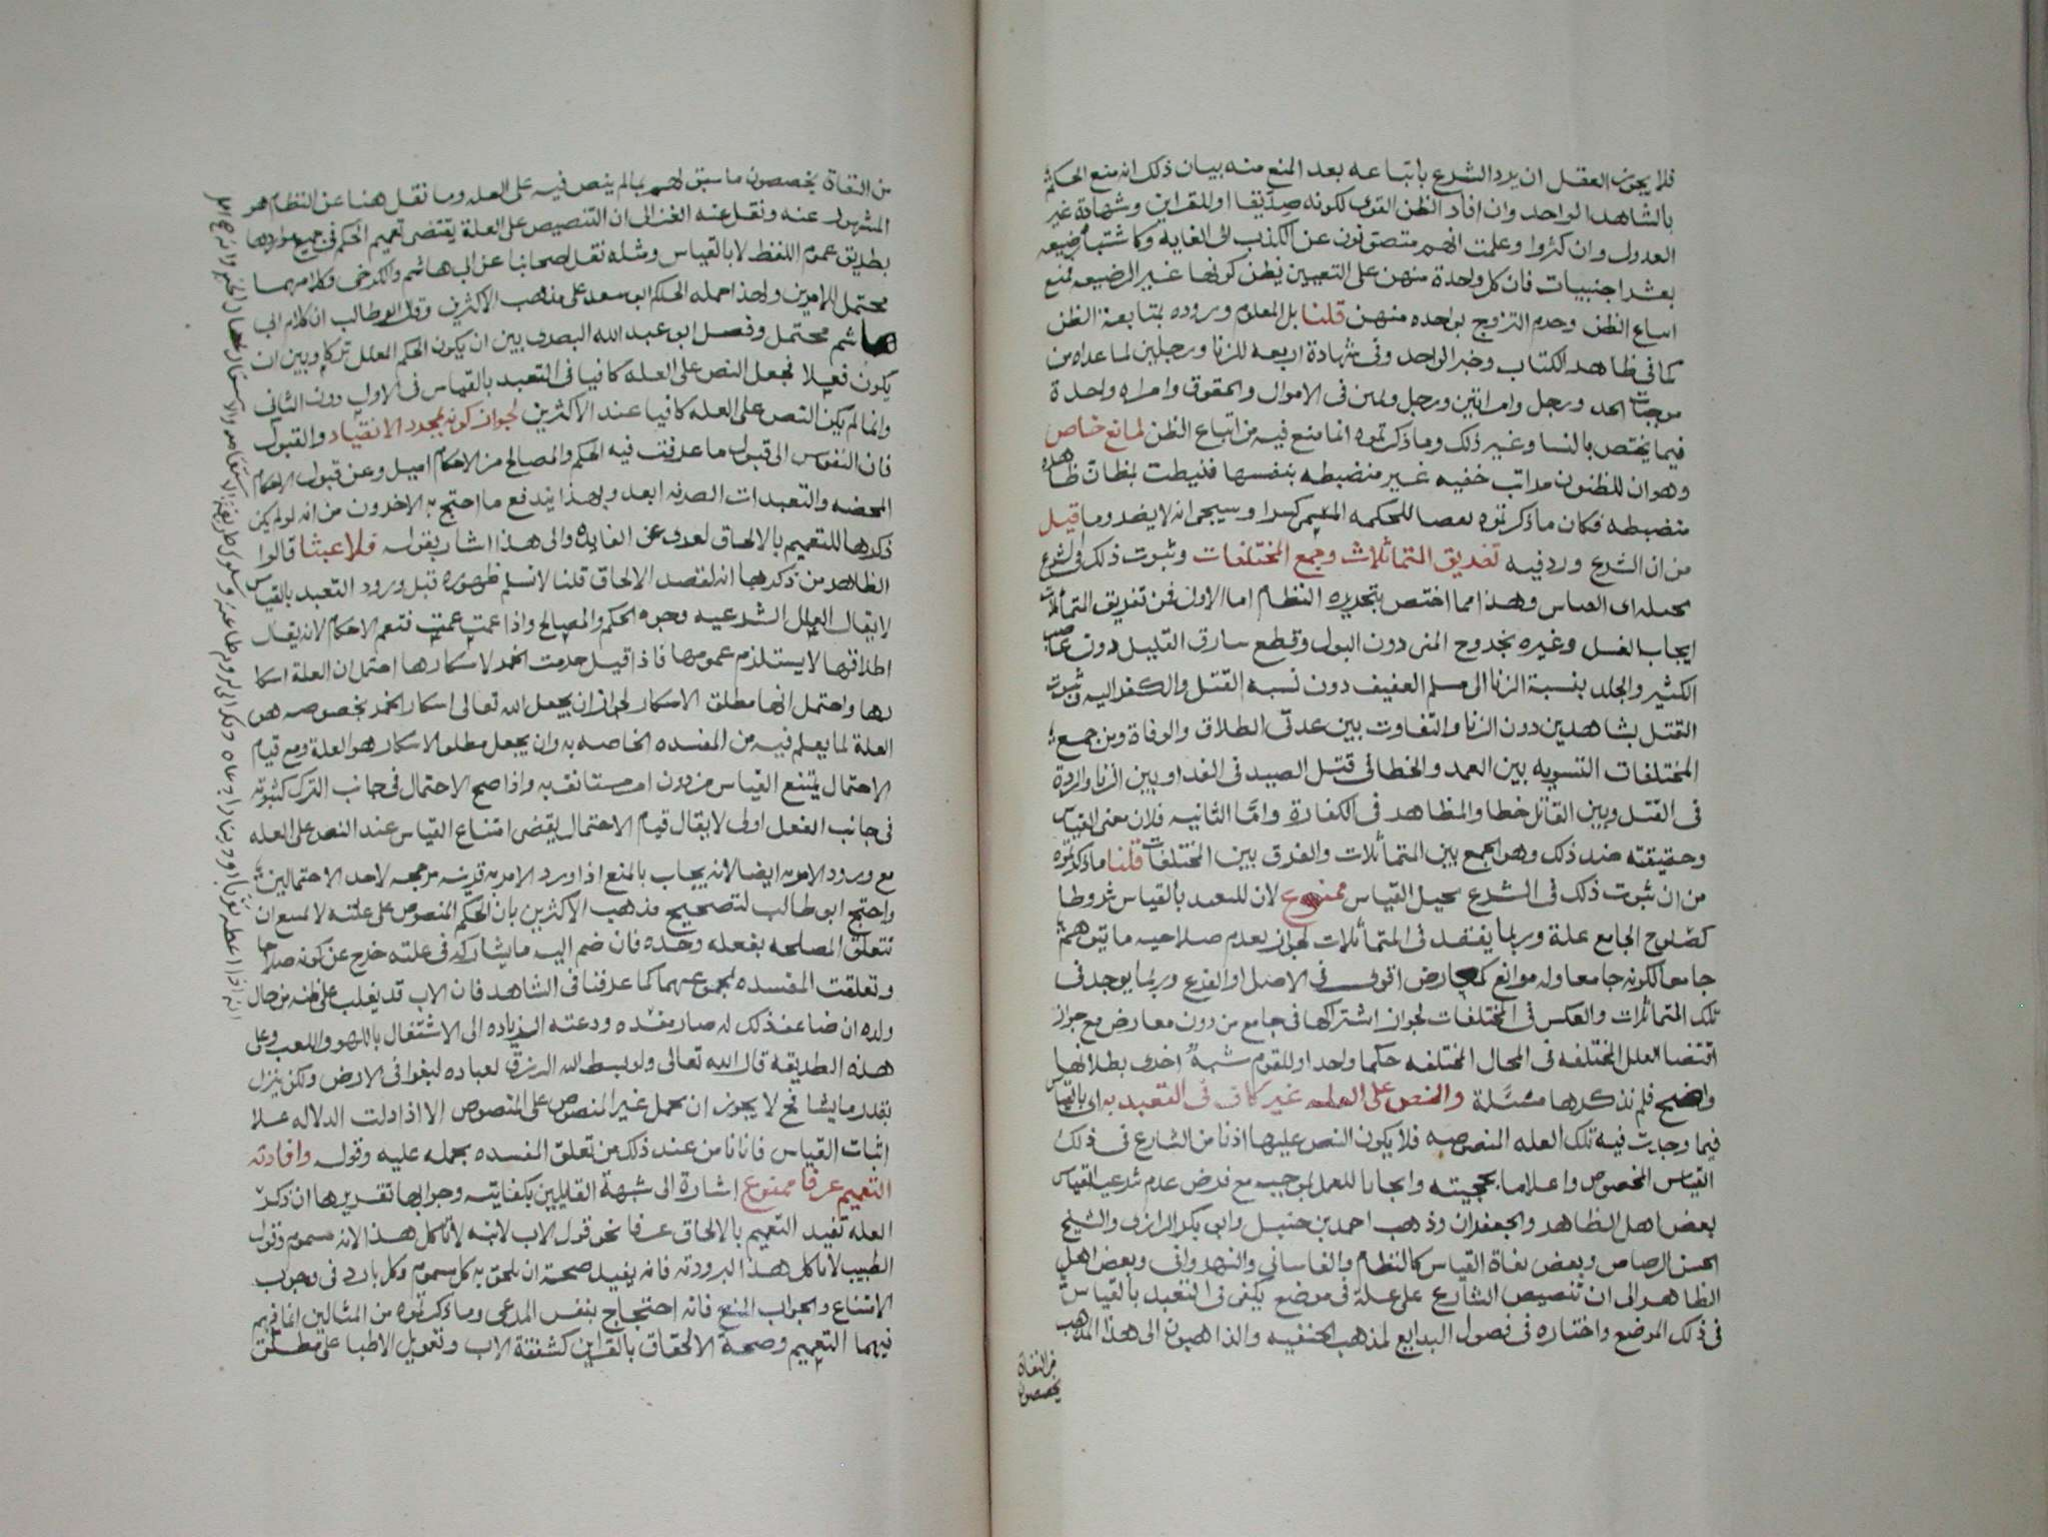 فلا يجوز العقل ان يرد الشرع باتباعه بعد المنع منه بيان ذلك انه منع الحكم
بالشاهد الواحد وان افاد الظن القوى لكونه صديقا او للقراين وشهادة غير
العدول وان كثروا وعلمت انهم متصونون عن الكذب الى الغايه وكاشتباه رضيعه
بعشر اجنبيات فان كل واحدة منهن على التعيين يظن كونها غير الرضيعه فمنع
اتباع الظن وحرم التزوج بواحده منهن قلنا بل المعلوم وروده بمتابعة الظن
كما فى ظاهر الكتاب وخبر الواحد وفى شهادة اربعه للزنا ورجلين لما عداه من
موجبات الحد ورجل وامراتين ورجل ويمين فى الاموال والحقوق وامراه واحدة
فيما يختص بالنسا وغير ذلك وما ذكرتموه انما منع فيه من اتباع الظن لمانع خاص
وهو ان للظنون مراتب خفيه غير منضبطه بنفسها فنيطت بمظان ظاهره
منضبطه فكان ما ذكرتموه نقصا للحكمه المسمى كسرا وسيجى انه لا يضر وما قيل
من ان الشرع ورد فيه تفريق المتماثلات وجمع المختلفات وثبوت ذلك فى الشرع
محيله اى القياس وهذا مما اختص بتحريره النظام اما الاولى فمن تفريق المتماثلات
ايجاب الغسل وغيره بخروج المنى دون البول وقطع سارق القليل دون غاصب
الكثير والجلد بنسبة الزنا الى مسلم العفيف دون نسبه القتل والكفر اليه وثبوت
القتل بشاهدين دون الزنا والتفاوت بين عدتى الطلاق والوفاة ومن جمع
المختلفات التسويه بين العمد والخطا فى قتل الصيد فى الفدا وبين الزنا والردة
فى القتل وبين القاتل خطا والمظاهر فى الكفارة واما الثانيه فلان معنى القياس
وحقيقته ضد ذلك وهو الجمع بين المتماثلات والفرق بين المختلفات قلنا ما ذكرتموه
من ان ثبوت ذلك فى الشرع محيل القياس ممنوع لان للتعبد بالقياس شروطا
كصلوح الجامع علة وربما يفقد فى المتماثلات لجواز عدم صلاحيه ما يتوهم
جامعا لكونه جامعا وله موانع كمعارض اقوى فى الاصل او الفرع وربما يوجد فى
تلك المتماثلات والعكس فى المختلفات لجواز اشتراكها فى جامع من دون معارض مع جواز
اقتضا العلل المختلفه فى المحال المختلفه حكما واحدا وللقوم شبه اخرى بطلانها
واضح فلم نذكرها مسئلة والنص على العله غير كاف فى التعبد به اى بالقياس
فيما وجدت فيه تلك العله المنصوصه فلا يكون النص عليها اذنا من الشارع فى ذلك
القياس المخصوص واعلاما بحجيته وايجابا للعمل بموجبه مع فرض عدم شرعية القياس
بعض اهل الظاهر والجعفران وذهب احمد بن حنبل وابى بكر الرازى والشيخ
الحسن الرصاص وبعض نفاة القياس كالنظام والقاسانى والنهروانى وبعض اهل
الظاهر الى ان تنصيص الشارع على علة فى موضع يكفى فى التعبد بالقياس
فى ذلك الموضع واختاره فى فصول البدايع لمذهب الحنفيه والذاهبون الى هذا المذهب
من النفاة
يخصصون
من النفاة يخصصون ما سبق لهم بما لم ينص فيه على العله وما نقل هنا عن النظام هو
المشهور عنه ونقل عنه الغزالى ان التنصيص على العلة يقتضى تعميم الحكم فى جميع مواردها
بطريق عموم اللفظ لا بالقياس ومثله نقل اصحابنا عن ابى هاشم والكرخى وكلامهما
محتمل للامرين ولهذا حمله الحاكم ابو سعد على مذهب الاكثرين وقال ابو طالب ان كلام ابى
هاشم محتمل وفصل ابو عبد الله البصرى بين ان يكون الحكم المعلل تركا وبين ان
يكون فعلا فجعل النص على العله كافيا فى التعبد بالقياس فى الاول دون الثانى
وانما لم يكن النص على العله كافيا عند الاكثرين لجواز كونه لمجرد الانقياد والقبول
فان النفوس الى قبول ما عرفت فيه الحكم والمصالح من الاحكام اميل وعن قبول الاحكام
المحضه والتعبدات الصرفه ابعد وبهذا يندفع ما احتج به الاخرون من انه لو لم يكن
ذكرها للتعميم بالالحاق لعرى عن الفايده والى هذا اشار بقوله فلا عبثا قالوا
الظاهر من ذكرها انه لقصد الالحاق قلنا لا نسلم ظهوره قبل ورود التعبد بالقياس
لا يقال العلل الشرعيه وجوه الحكم والمصالح واذا عمت عمت فتعم الاحكام لانه يقال
اطلاقها لا يستلزم عمومها فاذا قيل حرمت الخمر لاسكارها احتمل ان العلة اسكا
رها واحتمل انها مطلق الاسكار لجواز ان يجعل الله تعالى اسكار الخمر بخصوصه هو
العلة لما يعلم فيه من المفسده الخاصه به وان يجعل مطلق الاسكار هو العلة ومع قيام
الاحتمال يمتنع القياس من دون امر مستانف به واذا صح الاحتمال فى جانب الترك كثبوته
فى جانب الفعل اولى لا يقال قيام الاحتمال يقضى امتناع القياس عند النص على العله
مع ورود الامر به ايضا لانه يجاب بالمنع اذ ورد الامر به قرينه مرجحه لاحد الاحتمالين
واحتج ابو طالب لتصحيح مذهب الاكثرين بان الحكم المنصوص على علته لا يمتنع ان
تتعلق المصلحه بفعله وحده فان ضم اليه ما يشاركه فى علته خرج عن كونه صلاحا
وتعلقت المفسده بمجموعهما كما عرفنا فى الشاهد فان الاب قد يغلب على ظنه من حال
ولده ان ضاعف ذلك له صار مفسده ودعته الزياده الى الاشتغال باللهو واللعب وعلى
هذه الطريقه قال الله تعالى ولو بسط الله الرزق لعباده لبغوا فى الارض ولكن ينزل
بقدر ما يشا نحن لا يجوز ان نحمل غير المنصوص على المنصوص الا اذا دلت الدلاله على
اثبات القياس فانا نامن عند ذلك من تعلق المفسده بحمله عليه وقوله وافادته
التعميم عرفا ممنوع اشارة الى شبهة القايلين بكفايته وجوابها تقريرها ان ذكر
العله تفيد التعميم بالالحاق عرفا نحو قول الاب لابنه لا تاكل هذا لانه مسموم وقول
الطبيب لا تاكل هذا لبرودته فانه يفيد صحة ان يلحق به كل مسموم وكل بارد فى وجوب
الامتناع والجواب المنع فانه احتجاج بنفس المدعى وما ذكرتموه من المثالين انما فهم
فيهما التعميم وصحة الالحاق بالقراين كشفقة الاب وتعويل الاطبا على مطلق